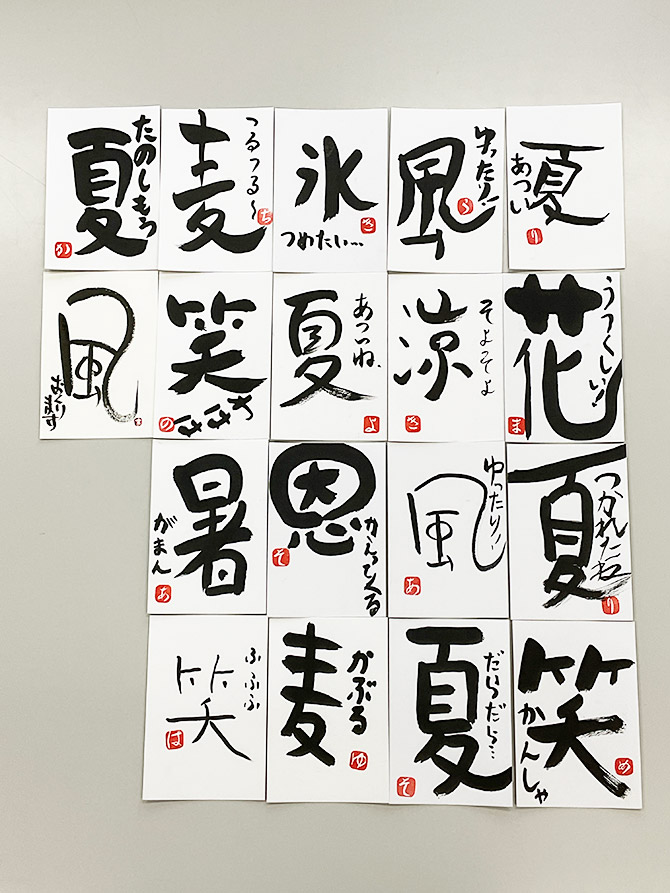 夏
たのしもう
か
麦
つるつる〜
ち
氷
つめたい…
き
風
ゆったり!
ら
夏
あつい
り
風
おくります
笑
ははは
の
夏
あついね、
よ
涼
そよそよ
き
花
うつくしい!
ま
暑
がまん
あ
恩
かえってくる
そ
風
ゆったり!
あ
夏
つかれたね
り
笑
ふふふ
は
麦
かぶる
ゆ
夏
だらだら…
そ
笑
かんしゃ
め